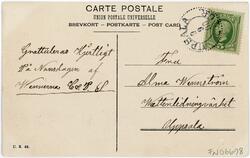 CARTE POSTALE
UNION POSTALE UNIVERSELLE
BREVKORT - POSTKARTE - POST CARD
UPSALA
5
Gratuleras Hjertligt
På Namnsdagen af
Vännerna C & S
Frk
Alma Wennström
Vattenledningsverket
Uppsala
FN06678